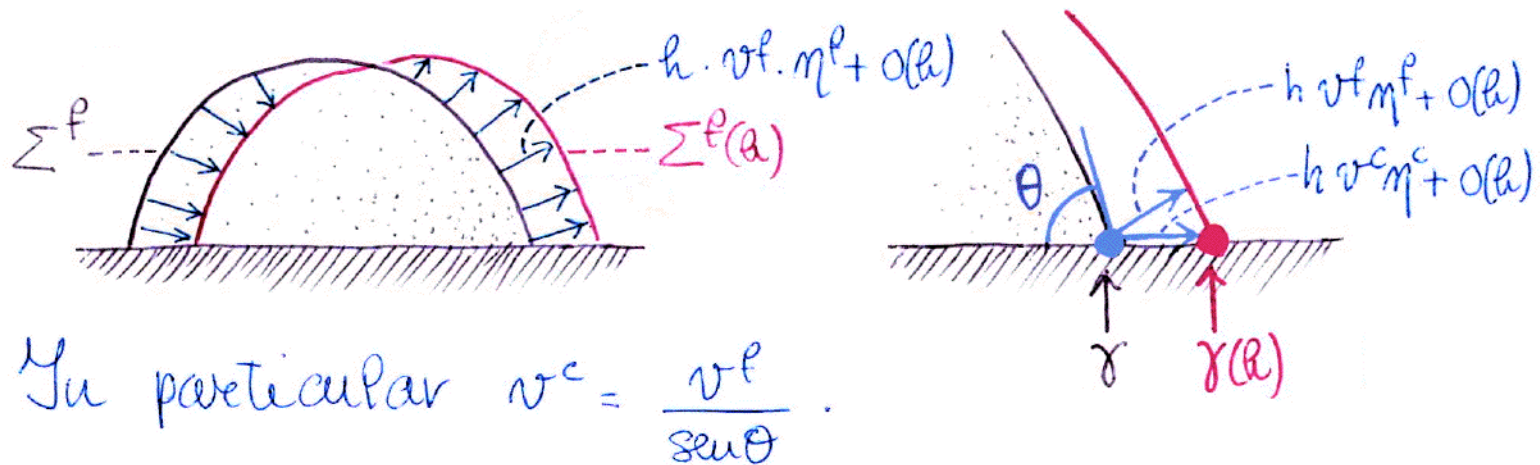 h · v^f · η^f + o(h)
Σ^f
Σ^f(h)
h v^f η^f + o(h)
h v^c η^c + o(h)
θ
γ
γ(h)
In particular v^c = v^f / sen θ .